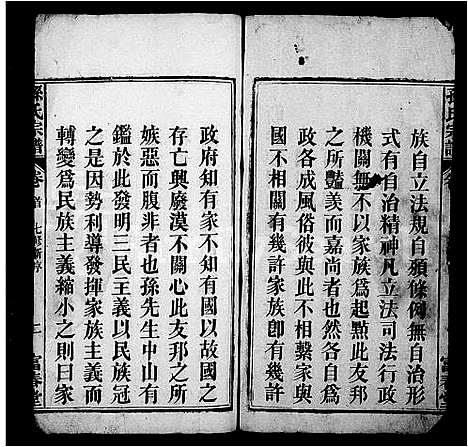 族自立法規自頒條例無自治形
式有自治精神凡立法司法行政
機關無不以家族為起點此友邦
之所豔美而嘉尚者也然各自為
政各成風俗彼與此不相繫家與
國不相關有幾許家族卽有幾許
政府知有家不知有國以故國之
存亡興廢漠不關心此友邦之所
嫉惡而腹非者也孫先生中山有
鑑於此發明三民主義以民族冠
之是因勢利導發揮家族主義而
轉變爲民族主義縮小之則曰家
孫氏宗譜
卷首
七修新序
二
富春堂